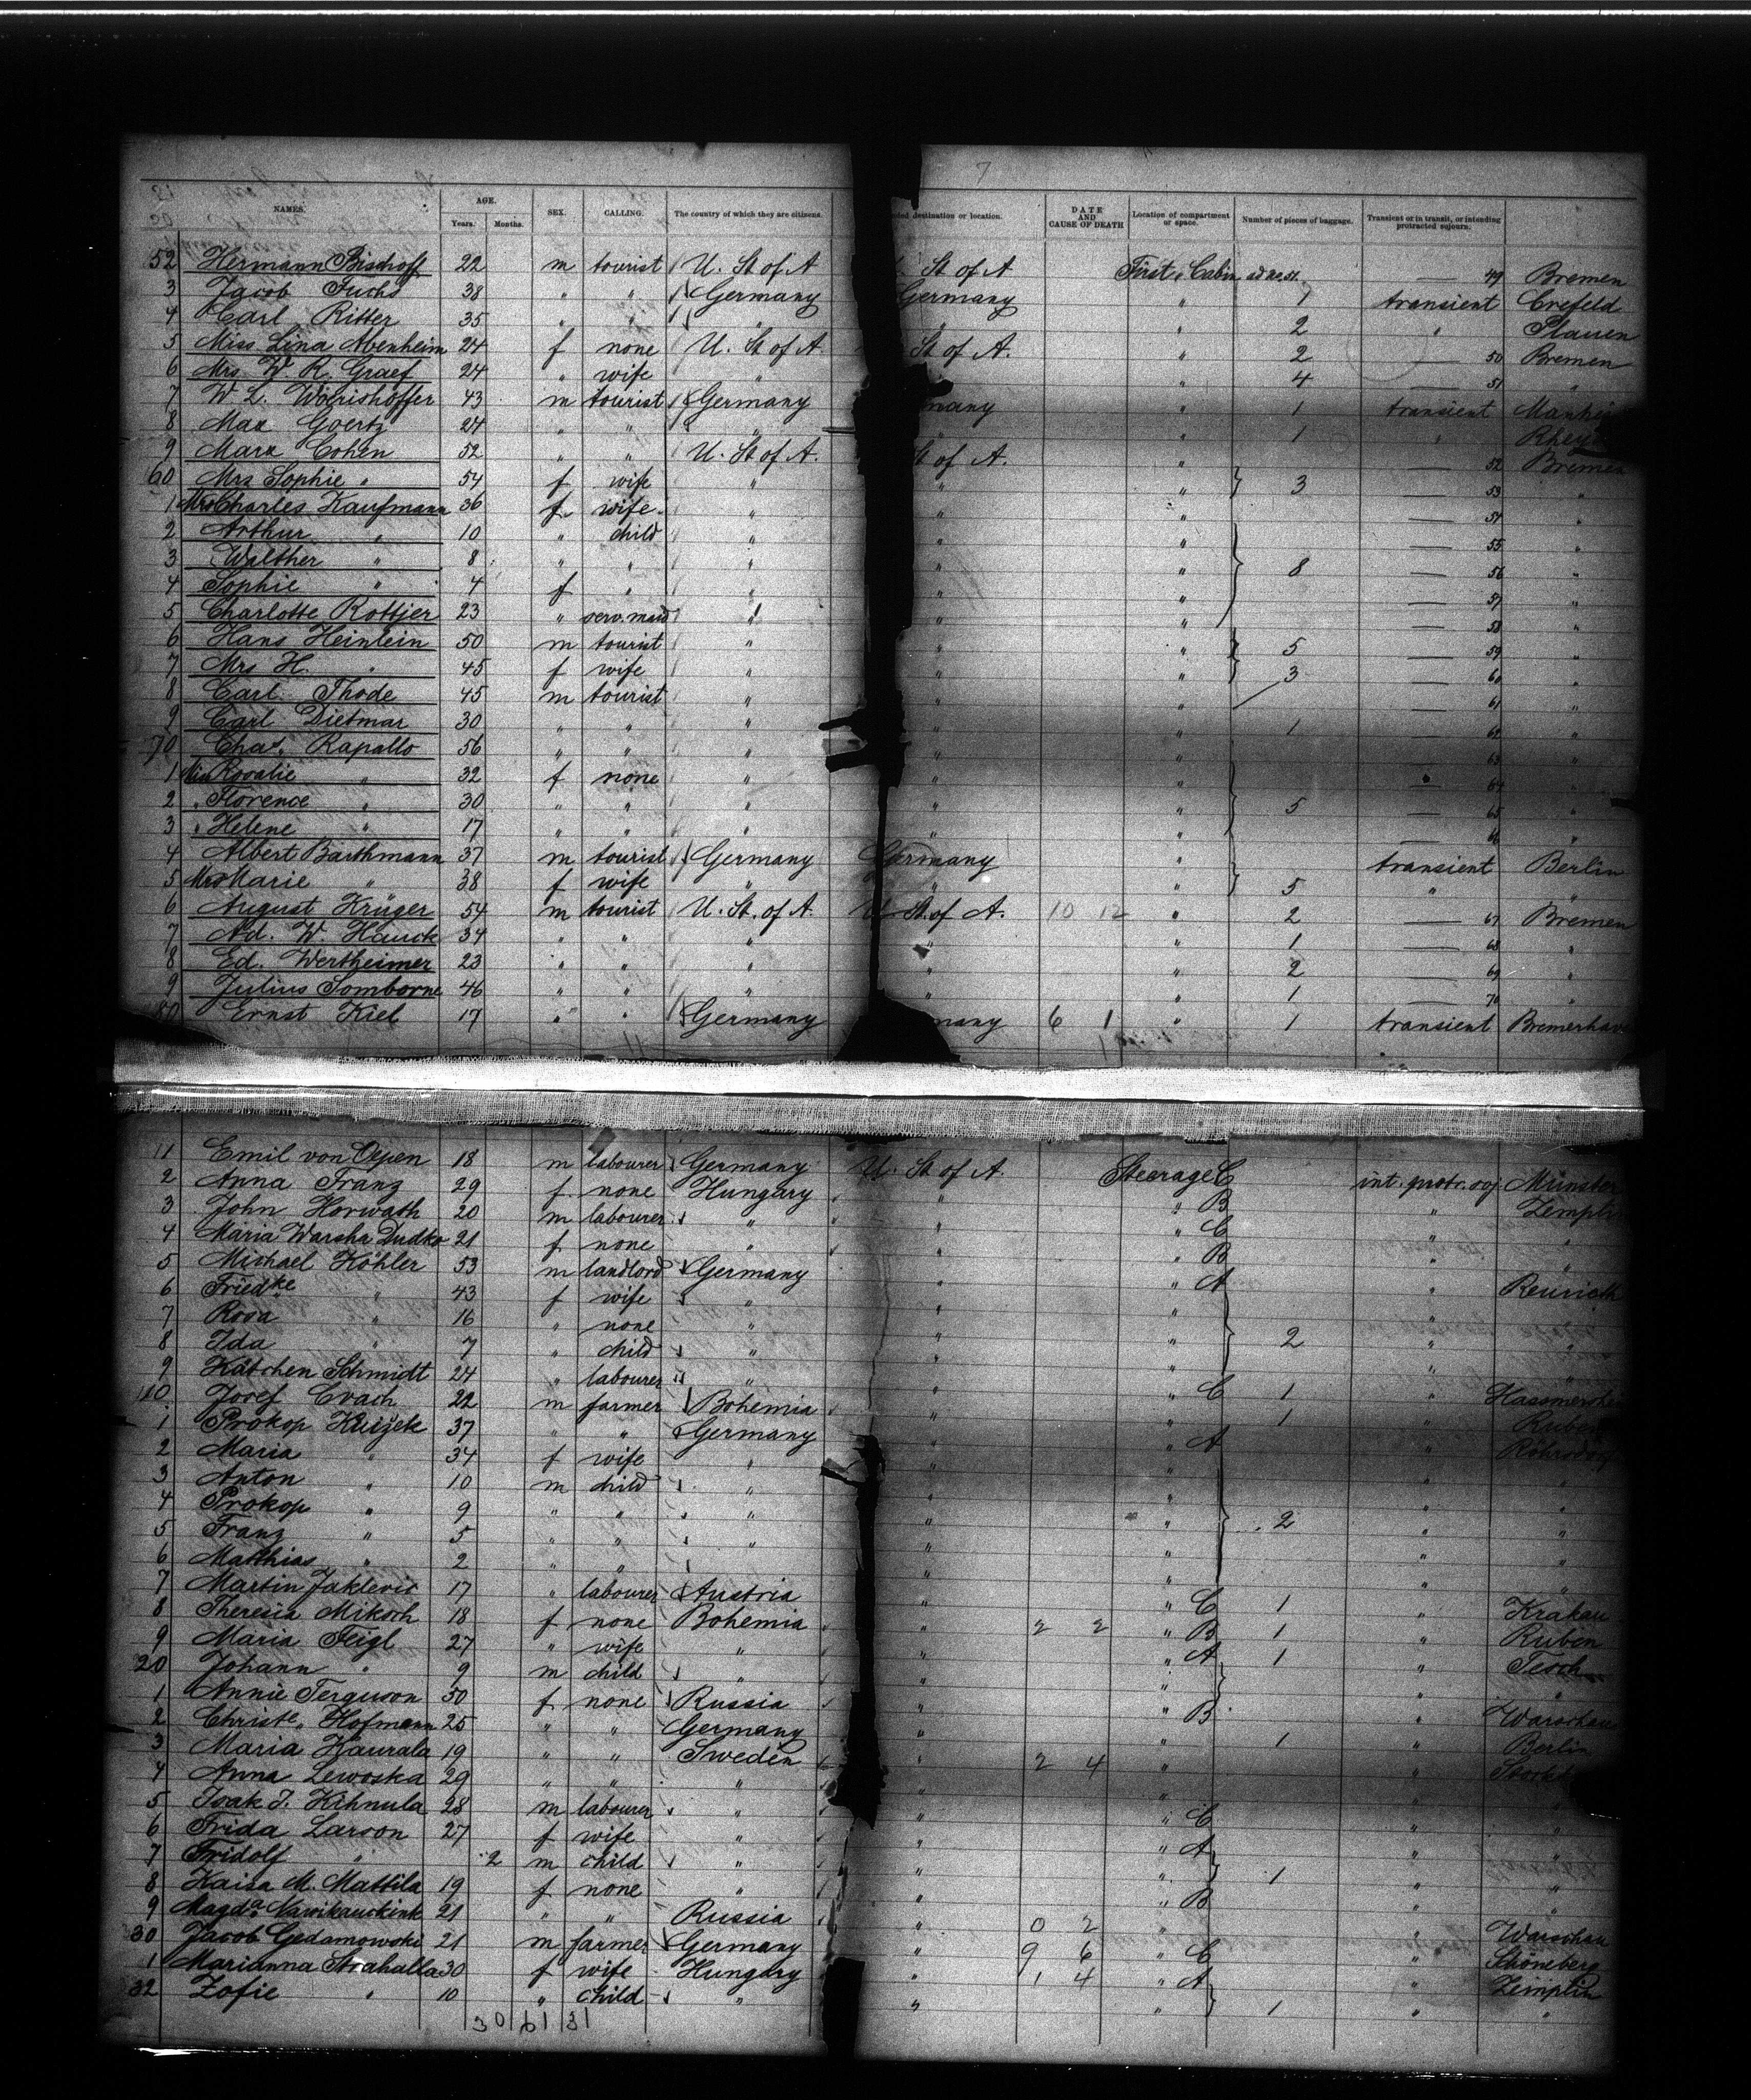 7
NAMES. AGE. Years. Months. SEX. CALLING. The country of which they are citizens. destination or location. DATE AND CAUSE OF DEATH Location of compartment or space. Number of pieces of baggage. Transient or in transit, or intending protracted sojourn.
52 Hermann Bischoff 22 m tourist U. St of A St of A First Cabin — 49 Bremen
3 Jacob Fuchs 38 " " Germany Germany " 1 transient Crefeld
4 Carl Ritter 35 " " " " " 2 " Plauen
5 Miss Lina Abenheim 24 f none U. St of A. St of A. " 2 — 50 Bremen
6 Mrs. W. R. Graef 24 " wife " " 4 — 51 "
7 W L. Woerishoffer 43 m tourist Germany many " 1 transient
8 Max Goertz 24 " " " " " 1 "
9 Marx Cohen 52 " " U. St of A. St of A. " — 52 Bremen
60 Mrs Sophie " 54 f wife " " " 3 — 53 "
1 Mrs Charles Kaufmann 36 f wife " " " — 54 "
2 Arthur " 10 " child " " " — 55 "
3 Walther " 8 " " " " " 8 — 56 "
4 Sophie " 4 f " " " " — 57 "
5 Charlotte Rottjer 23 " serv. maid " " " — 58 "
6 Hans Heinlein 50 m tourist " " " 5 — 59 "
7 Mrs H. " 45 f wife " " " 3 — 60 "
8 Carl Thode 45 m tourist " " " — 61 "
9 Carl Dietmar 30 " " " " " 1 — 62 "
70 Chas. Rapallo 56 " " " " " — 63 "
1 Miss Rosalie " 32 f none " " " — 64 "
2 " Florence " 30 " " " " " 5 — 65 "
3 " Helene " 17 " " " " " — 66 "
4 Albert Barthmann 37 m tourist Germany Germany " transient Berlin
5 Mrs Marie " 38 f wife " " " 5 " "
6 August Krüger 54 m tourist U. St. of A. U St. of A. 10 12 " 2 — 67 Bremen
7 Ad. W. Hauck 34 " " " " " 1 — 68 "
8 Ed. Wertheimer 23 " " " " " 2 — 69 "
9 Julius Somborne 46 " " " " " 1 — 70 "
80 Ernst Kiel 17 " " Germany many 6 1 " 1 transient
11 Emil von Oepen 18 m labourer Germany U. St of A. Steerage C int. protr. soj. Münster
2 Anna Franz 29 f none Hungary " " B " Zemplin
3 John Horwath 20 m labourer " " " C " "
4 Maria Warsha Dudko 21 f none " " " B " "
5 Michael Köhler 53 m landlord Germany " " A " Reurieth
6 Friedke " 43 f wife " " " "
7 Rosa " 16 " none " " " 2 " "
8 Ida " 7 " child " " " " "
9 Kätchen Schmidt 24 " labourer " " " C 1 "
110 Josef Cvach 22 m farmer Bohemia " " 1 "
1 Prokop 37 " " Germany " " A "
2 Maria " 34 f wife " " " " "
3 Anton " 10 m child " " " " "
4 Prokop " 9 " " " " " 2 " "
5 Franz " 5 " " " " " " "
6 Matthias " 2 " " " " " " "
7 Martin Jaklevic 17 " labourer Austria " " C 1 " Krakau
8 Theresia Mikoch 18 f none Bohemia " 2 2 " B 1 " Ruben
9 Maria Feigl 27 " wife " " " A 1 "
20 Johann " 9 m child " " " " "
1 Annie Ferguson 50 f none Russia " " B " Warschau
2 Christe. Hofmann 25 " " Germany " " 1 " Berlin
3 Maria Kaurala 19 " " Sweden " 2 4 " "
4 Anna Lewoska 29 " " " " " " "
5 Isak J. Kihnula 28 m labourer " " " C " "
6 Frida Larson 27 f wife " " " A " "
7 Fridolf " 2 m child " " " 1 " "
8 Kaisa M. Mattila 19 f none " " " B " "
9 Magda. 21 " " Russia " 0 2 " " Warschau
30 Jacob Gedamowski 21 m farmer Germany " 9 6 " C " Schöneberg
1 Marianna Strahalla 30 f wife Hungary " 1 4 " A " Zemplin
32 Zofie " 10 " child " " " 1 " "
30 61 31